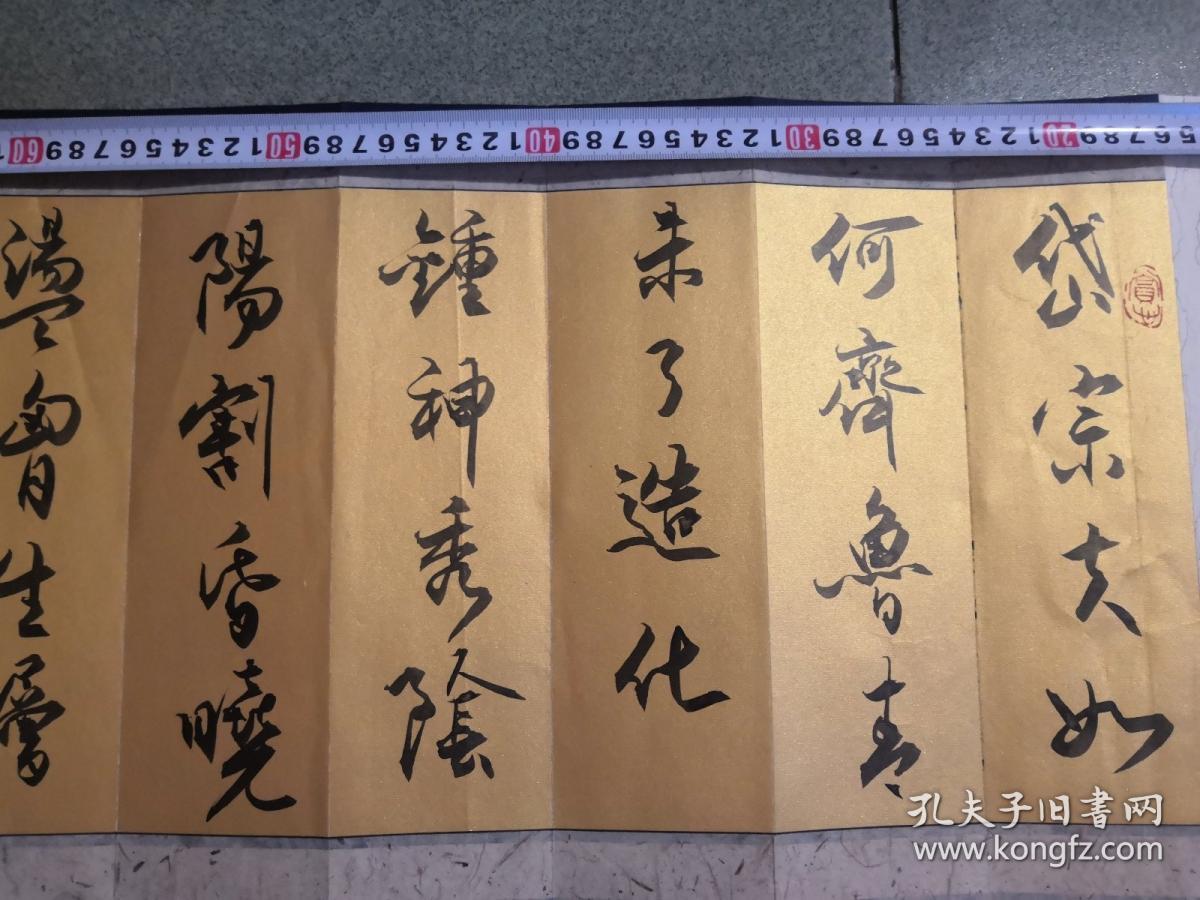 5 6 7 8 9 20 1 2 3 4 5 6 7 8 9 30 1 2 3 4 5 6 7 8 9 40 1 2 3 4 5 6 7 8 9 50 1 2 3 4 5 6 7 8 9 60
岱宗夫如
何齊魯青
未了造化
鍾神秀陰
陽割昏曉
盪胷生層
孔夫子旧书网
www.kongfz.com